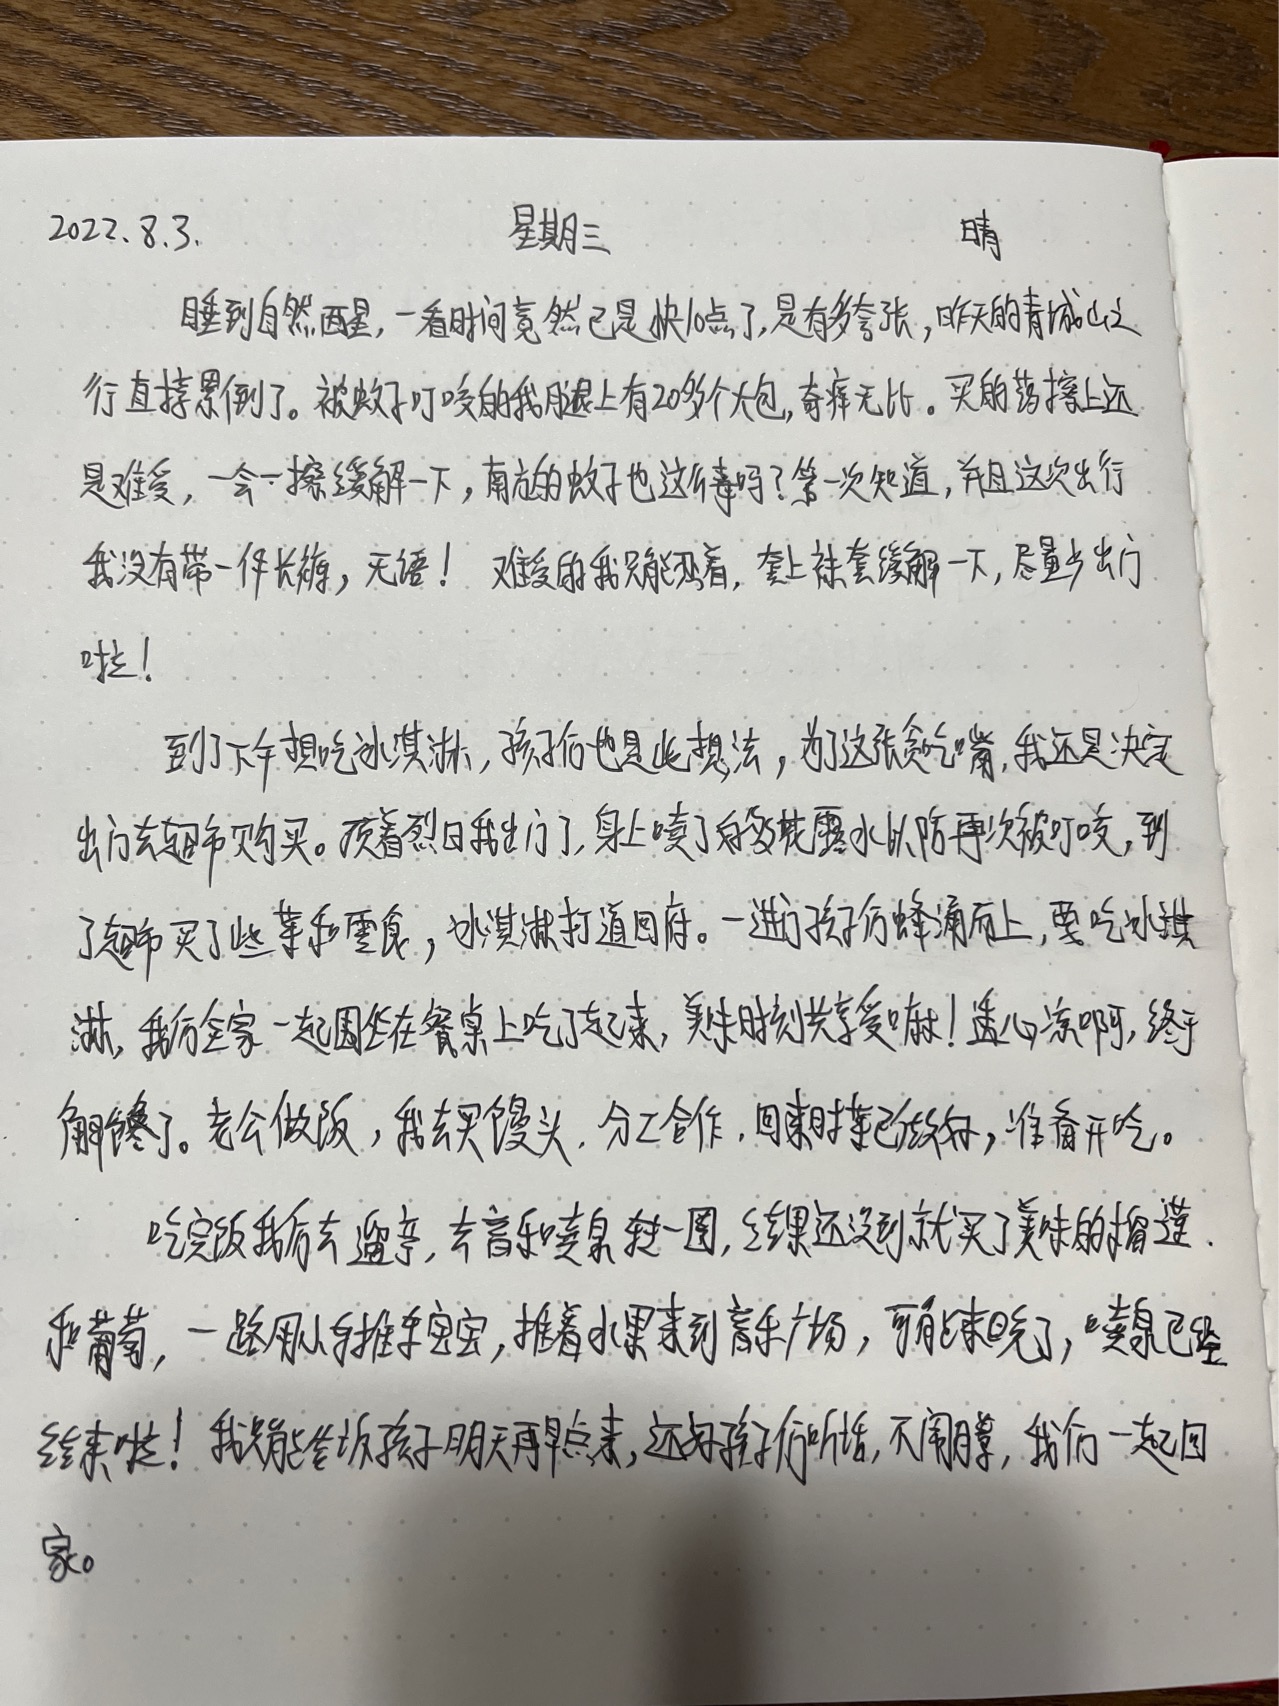 2022.8.3. 星期三 晴
睡到自然醒，一看时间竟然已是快10点了，是有多夸张，昨天的青城山之
行直接累倒了。被蚊子叮咬的我腿上有20多个大包，奇痒无比。买的药擦上还
是难受，一会一擦缓解一下，南方的蚊子也这么毒吗？第一次知道，并且这次出行
我没有带一件长裤，无语！ 难受的我只能忍着，套上袜套缓解一下，尽量少出门
啦！
到了下午想吃冰淇淋，孩子们也是此想法，为了这张贪吃嘴，我还是决定
出门去超市购买。顶着烈日我出门了，身上喷了自的花露水以防再次被叮咬，到
了超市买了些菜和零食，冰淇淋打道回府。一进门孩子们蜂涌而上，要吃冰淇
淋，我们全家一起围坐在餐桌上吃了起来，美味时刻共享受嘛！透心凉啊，终于
解馋了。老公做饭，我去买馒头，分工合作，回来时菜已做好，准备开吃。
吃完饭我们去遛弯，去音乐喷泉转一圈，结果还没到就买了美味的榴莲
和葡萄，一路用小手推车宝宝，推着水果来到音乐广场，可能来晚了，喷泉已经
结束啦！我只能告诉孩子明天再早点来，还好孩子们听话，不闹腾，我们一起回
家。